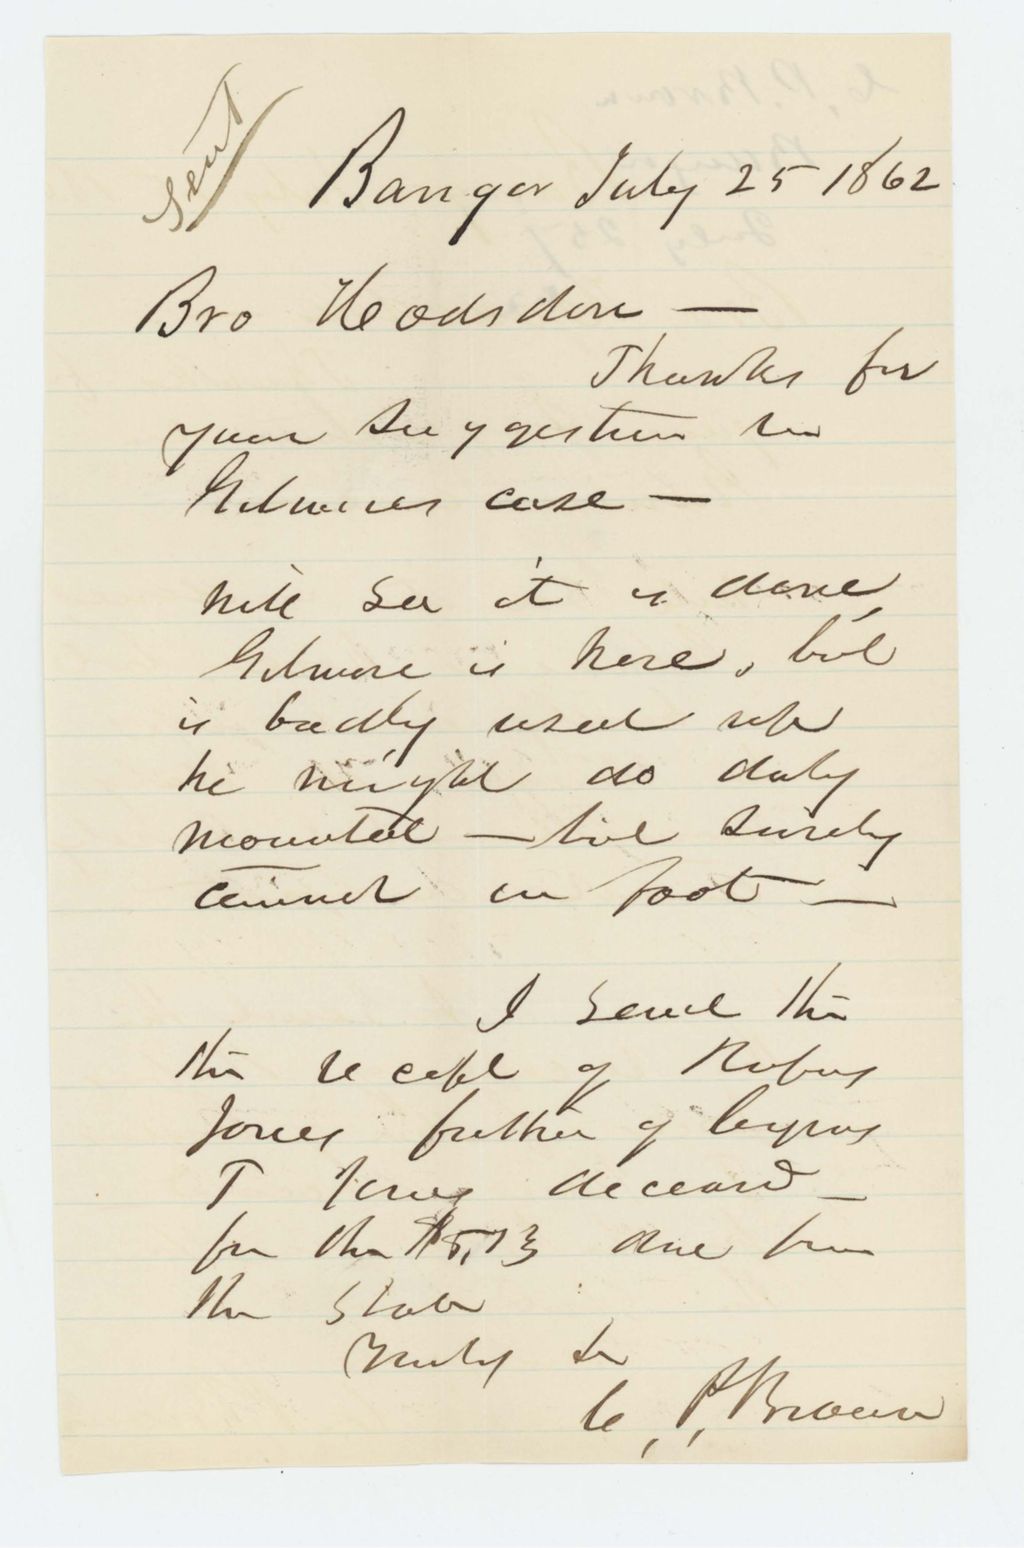 Sent
Bangor July 25 1862
Bro Hodsdon —
Thanks for
your suggestion in
Gilmores case —
will see it is done,
Gilmore is here, but
is badly used up
he might do duty
mounted — but surely
cannot on foot —
I send the
the receipt of Rufus
Jones father of Cyrus
T Jones deceasd —
for the $5,73 due from
the State
Truly &c
C, P, Brown